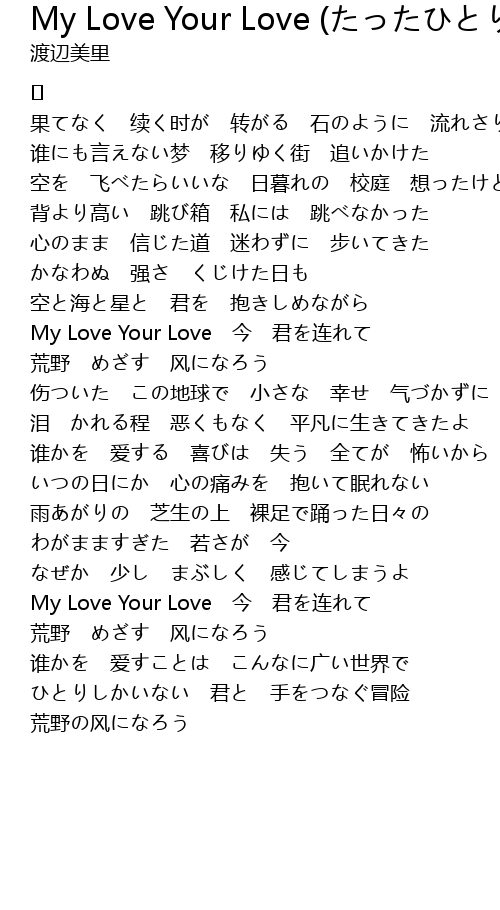 My Love Your Love (たったひとり
渡辺美里
果てなく　续く时が　转がる　石のように　流れさり
谁にも言えない梦　移りゆく街　追いかけた
空を　飞べたらいいな　日暮れの　校庭　想ったけど
背より高い　跳び箱　私には　跳べなかった
心のまま　信じた道　迷わずに　歩いてきた
かなわぬ　强さ　くじけた日も
空と海と星と　君を　抱きしめながら
My Love Your Love　今　君を连れて
荒野　めざす　风になろう
伤ついた　この地球で　小さな　幸せ　气づかずに
泪　かれる程　恶くもなく　平凡に生きてきたよ
谁かを　爱する　喜びは　失う　全てが　怖いから
いつの日にか　心の痛みを　抱いて眠れない
雨あがりの　芝生の上　裸足で踊った日々の
わがまますぎた　若さが　今
なぜか　少し　まぶしく　感じてしまうよ
My Love Your Love　今　君を连れて
荒野　めざす　风になろう
谁かを　爱すことは　こんなに广い世界で
ひとりしかいない　君と　手をつなぐ冒险
荒野の风になろう